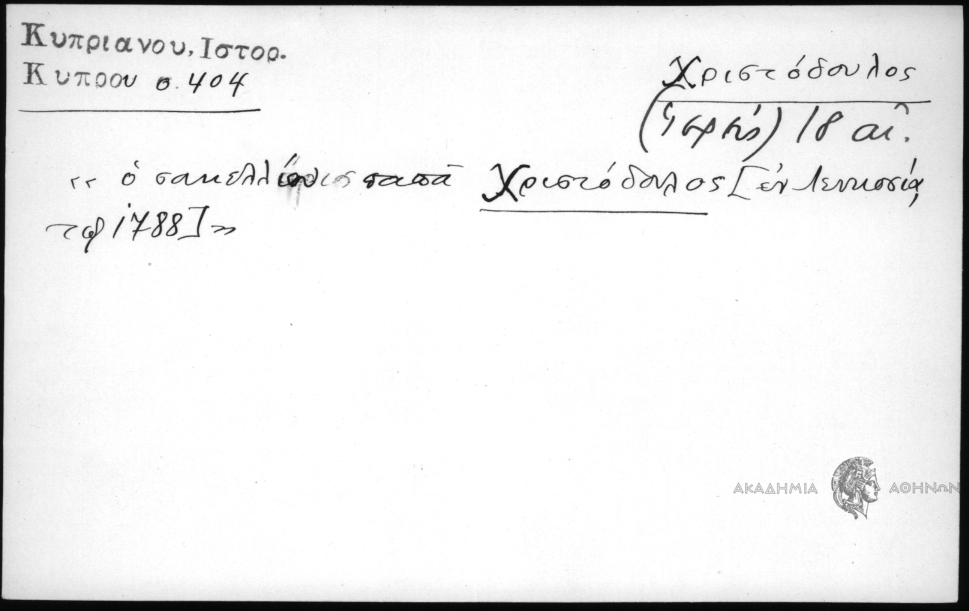 Κυπριανου, Ιστορ.
Κυπρου σ. 404
Χριστόδουλος
(Ἱερεύς) 18 αἰ.
«ὁ σακελλάριος παπᾶ Χριστόδουλος [ἐν Λευκωσίᾳ
τῷ 1788]»
ΑΚΑΔΗΜΙΑ ΑΘΗΝΩΝ